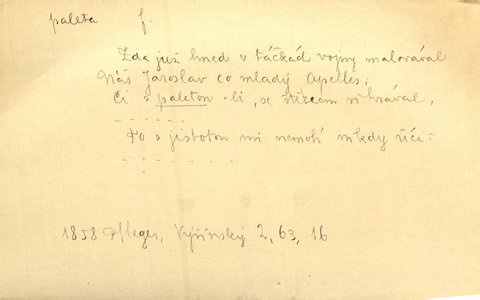 paleta f.
Zda již hned v táčkách vojny malovával
Náš Jaroslav co mladý Apelles,
Či s paletou -li, se štětcem si hrával,
- - - - - -
To s jistotou mi nemohl nikdy říci:
- - - - - -
1858 Pfleger, Vyšínský 2, 63, 16